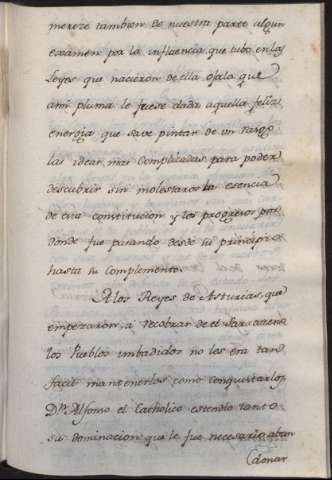 mereze tambien de nuestra parte algun
examen por la influencia que tubo en las
Leyes que nacieron de ella ojala que
ami pluma le fuese dada aquella feliz
energia que save pintar de un rasgo
las ideas mas complicadas para poder
descubrir sin molestaros la esencia
de esta constitucion y los progresos por
donde fue pasando desde su principio
hasta su complemento.
A los Reyes de Asturias, que
empezaron, a recobrar de el Sarraceno
los Pueblos imbadidos no les era tan
facil mantenerlos como conquistarlos
Dn. Alfonso el Catholico estendio tanto
su dominacion que le fue necesario aban
donar